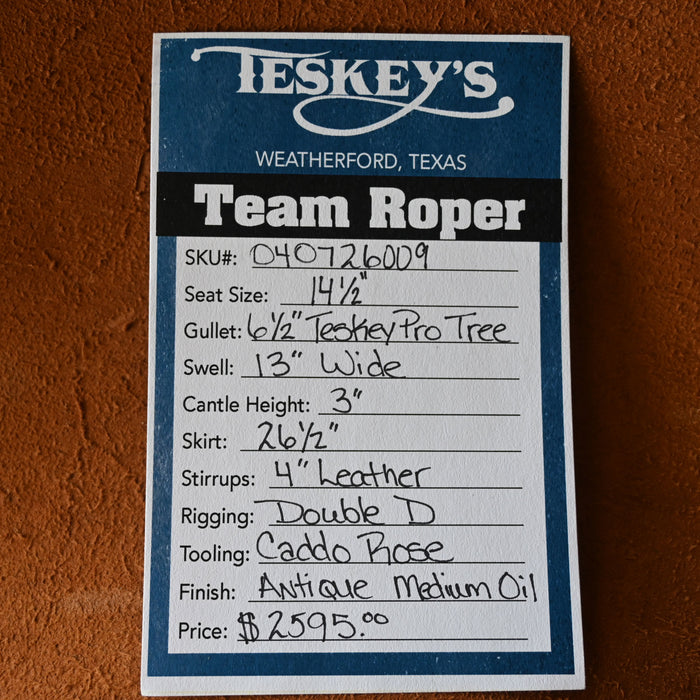 TESKEY'S
WEATHERFORD, TEXAS
Team Roper
SKU#: 040726009
Seat Size: 14 1/2"
Gullet: 6 1/2" Teskey Pro Tree
Swell: 13" Wide
Cantle Height: 3"
Skirt: 26 1/2"
Stirrups: 4" Leather
Rigging: Double D
Tooling: Caddo Rose
Finish: Antique Medium Oil
Price: $2595.00